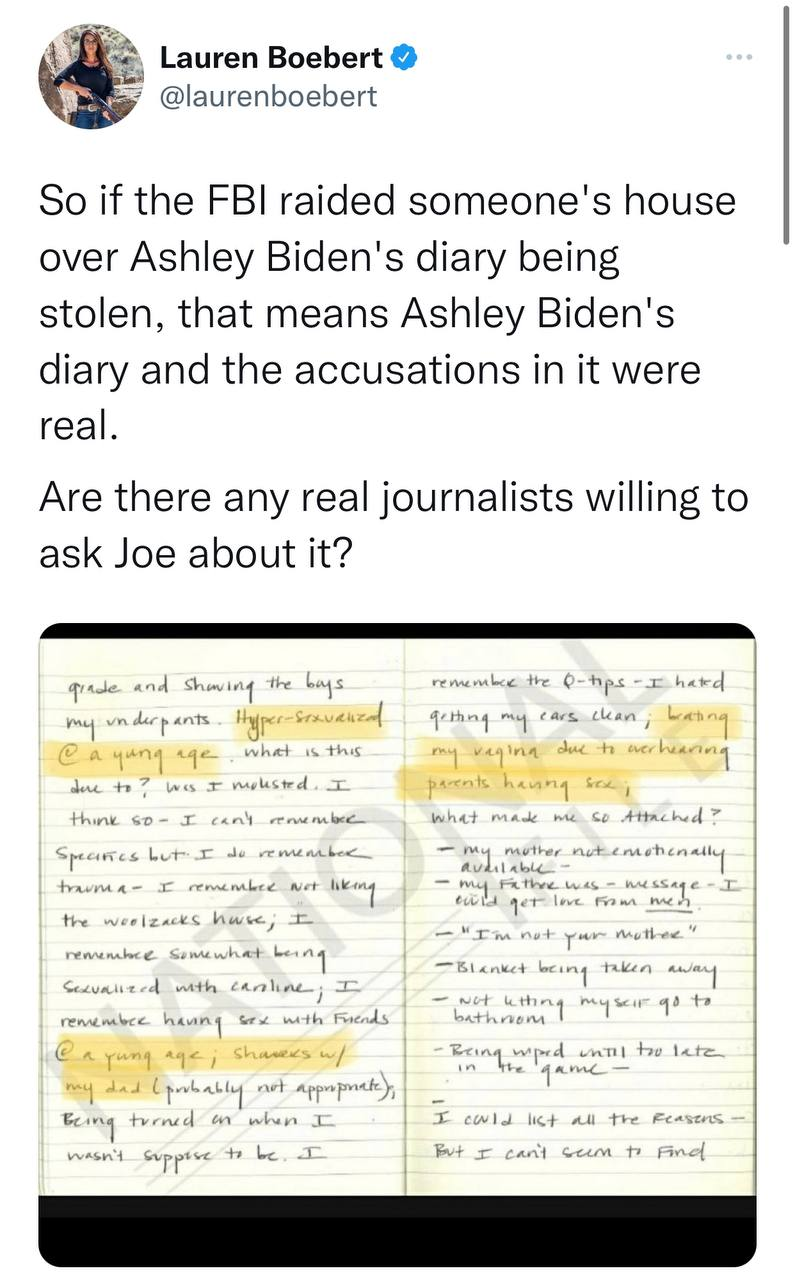 Lauren Boebert
@laurenboebert
So if the FBI raided someone's house
over Ashley Biden's diary being
stolen, that means Ashley Biden's
diary and the accusations in it were
real.
Are there any real journalists willing to
ask Joe about it?
grade and showing the boys
my underpants. Hyper-sexualized
@ a yung age. what is this
due to? was I molested. I
think so - I can't remember
specifics but I do remember
trauma - I remember not liking
the woolzacks house; I
remember somewhat being
sexualized with caroline; I
remember having sex with Friends
@ a yung age; showers w/
my dad (probably not appropriate);
Being turned on when I
wasn't suppose to be. I
remember the Q-tips - I hated
getting my ears clean;
my vagina due to overhearing
parents having sex;
what made me so Attached?
- my mother not emotionally
available -
- my Father was - message - I
could get love From men
- "I'm not your mother"
- Blanket being taken away
- not letting myself go to
bathroom
- Being wiped until too late
in the game -
-
I could list all the Reasons -
But I can't seem to Find
NATIONAL
FILE